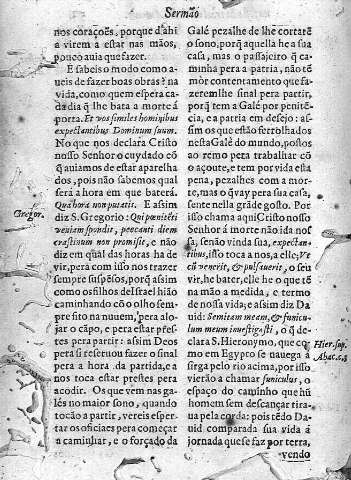 Sermão
nos corações, porque d'ahi
a virem a estar nas mãos,
pouco auia que fazer.
E sabeis o modo como a-
ueis de fazer boas obras? na
vida, como quem espera ca-
da dia q̃ lhe bata a morte á
porta. Et vos similes hominibus
expectantibus Dominum suum.
No que nos declara Cristo
nosso Senhor o cuydado cõ
q̃ auiamos de estar aparelha
dos, pois não sabemos qual
será a hora em que baterá.
Qua hora non putatis. E assim
Gregor.
diz S. Gregorio: Qui pœniteti
veniam spondit, peccanti diem
crastinum non promisit, e não
diz em qual das horas ha de
vir, pera com isso nos trazer
sempre suspẽsos, porq̃ assim
como os filhos de Israel hião
caminhando cõ o olho sem-
pre fito na nuuem, pera alo-
jar o cãpo, e pera estar prest-
tes pera partir: assim Deos
pera si reseruou fazer o sinal
pera a hora da partida, e a
nos toca estar prestes pera
acodir. Os que vem nas ga-
lés no maior sono, quando
tocão a partir, vereis esper-
tar os oficiaes pera começar
a caminhar, e o forçado da
Galé pezalhe de lhe cortarẽ
o sono, porq̃ aquella he a sua
casa, mas o passajeiro q̃ ca-
minha pera a patria, não tẽ
môr contentamento que fa-
zeremlhe sinal pera partir,
porq̃ tem a Galé por penitẽ-
cia, e a patria em desejo: as-
sim os que estão ferrolhados
nesta Galé do mundo, postos
ao remo pera trabalhar cõ
o açoute, e tem por vida esta
pena, pezalhes com a mor-
te, mas o q̃ vay pera sua casa,
sente nella grãde gosto. Por
isso chama aqui Cristo nosso
Senhor á morte não ida nos-
sa, senão vinda sua, expectan-
tibus, isso toca a nos, a elle; Ve
cũ venerit, & pulsauerit, o seu
vir, he bater, elle he o que tẽ
na mão a medida, e termo
de nossa vida; e assim diz Da
uid: Semitam meam, & funicu-
lum meum inuestigasti, o q̃ de-
clara S. Hieronymo, que co
Hier. sup.
mo em Egypto se nauega á
Abac. c. 3
sirga pelo rio acima, por isso
vierão a chamar funiculus, o
espaço do caminho que hũ
homem sem descançar tira-
ua pela corda: pois tẽdo Da-
uid comparada sua vida á
jornada que se faz por terra,
vendo